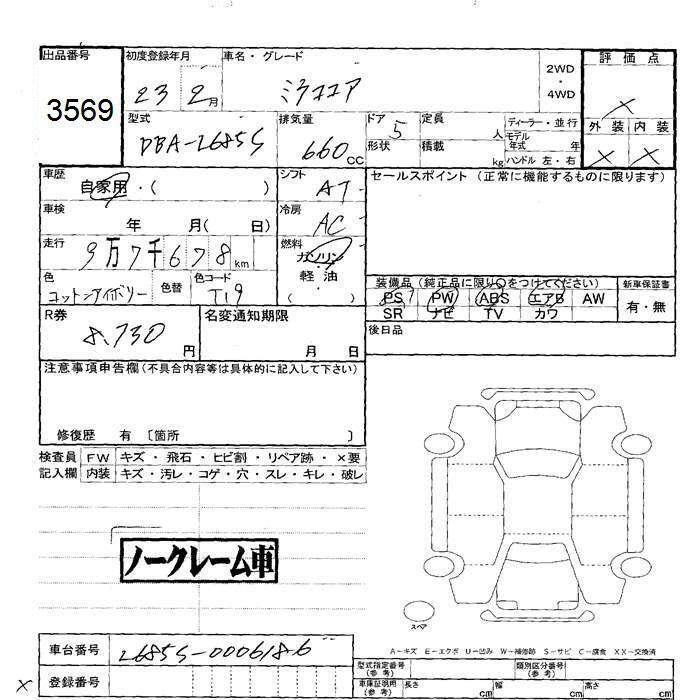 出品番号 初度登録年月 車名・グレード 評価点
3569 23 2月 ミラココア 2WD・4WD ×
型式 排気量 ドア 定員 ディーラー・並行 外装 内装
DBA-L685S 660cc 5 人 モデル年式 年
形状 積載 kg ハンドル 左・右 × ×
車歴 シフト セールスポイント (正常に機能するものに限ります)
自家用・( ) AT
車検 冷房
年 月( 日) AC
走行 燃料
9万7千678km ガソリン・軽油
( )
色 色替 色コード 装備品 (純正品に限り○をつけてください) 新車保証書
コットンアイボリー T19 PS PW ABS エアB AW 有・無
SR ナビ TV カワ
R券 名変通知期限 後日品
8,730円 月 日
注意事項申告欄(不具合内容等は具体的に記入して下さい)
修復歴 有 〔箇所 〕
検査員 FW キズ・飛石・ヒビ割・リペア跡・×要
記入欄 内装 キズ・汚レ・コゲ・穴・スレ・キレ・破レ
ノークレーム車
スペア
A-キズ E-エクボ U-凹み W-補修跡 S-サビ C-腐食 XX-交換済
車台番号 L685S-0006186 型式指定番号(参考) 類別区分番号(参考)
× 登録番号 車庫証明用(参考) 長さ cm 幅 cm 高さ cm